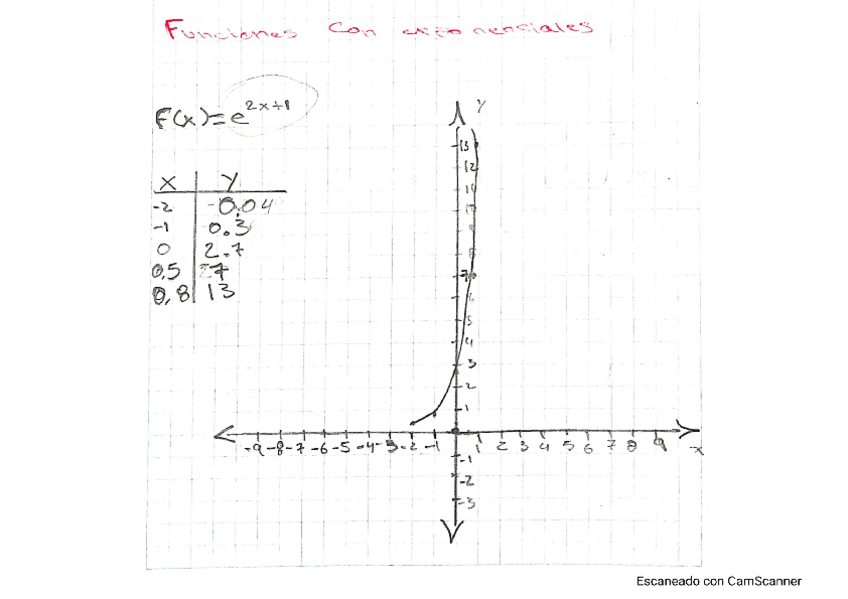 Funciones con exponenciales
F(x)=e^2x+1
x y
-2 -0.04
-1 0.3
0 2.7
0,5 7
0,8 13
y
13
12
11
10
9
8
7
6
5
4
3
2
1
-9 -8 -7 -6 -5 -4 -3 -2 -1 1 2 3 4 5 6 7 8 9 x
-1
-2
-3
Escaneado con CamScanner